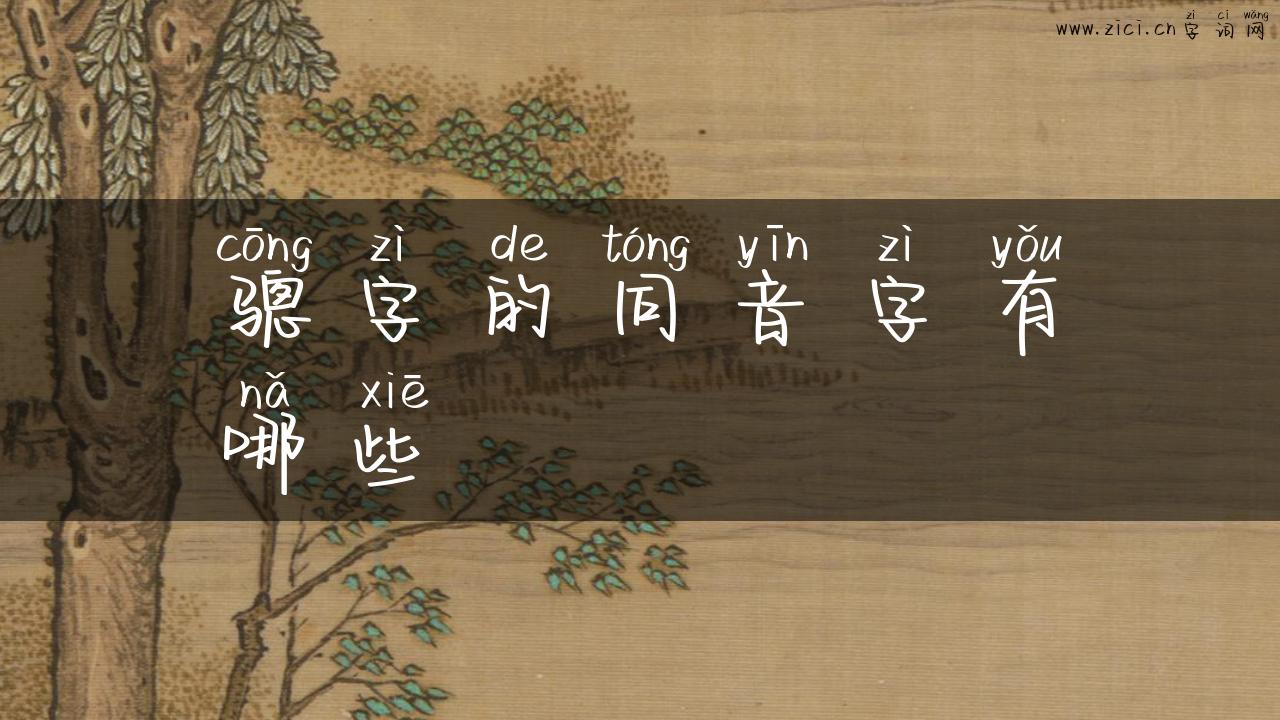 zì cí wǎng
www.zici.cn 字词网
cōng zì de tóng yīn zì yǒu
骢字的同音字有
nǎ xiē
哪些